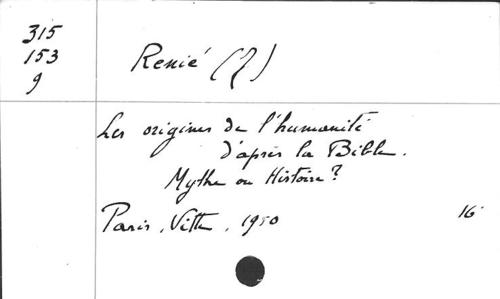 315
153
9
Renié (J)
Les origines de l'humanité
d'après la Bible.
Mythe ou Histoire?
Paris, Vitte, 1950
16